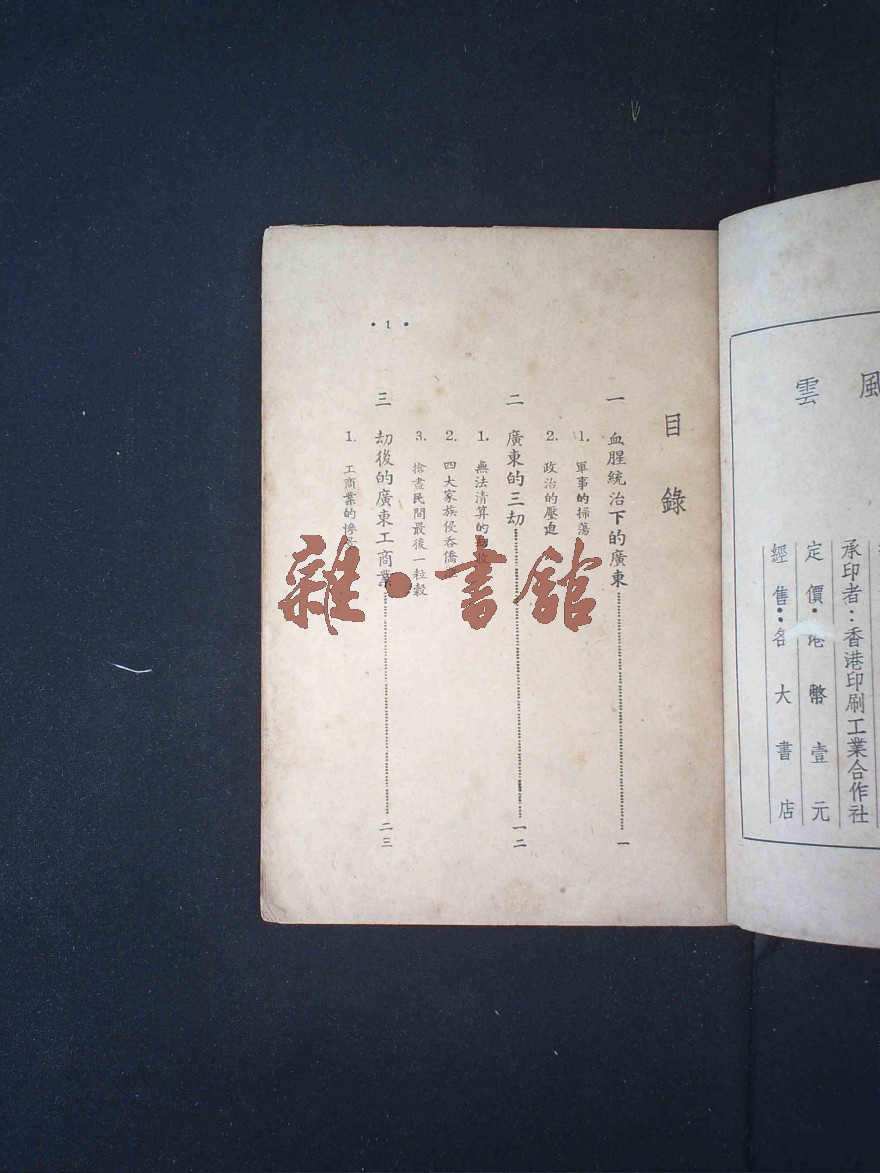 風雲
承印者：香港印刷工業合作社
定價：港幣壹元
經售：各大書店
目錄
一 血腥統治下的廣東……一
1. 軍事的掃蕩
2. 政治的壓迫
二 廣東的三刧……一二
1. 無法清算的收
2. 四大家族侵吞僑
3. 搶盡民間最後一粒穀
三 刧後的廣東工商業……二三
1. 工商業的慘
• 1 •
雜·書館